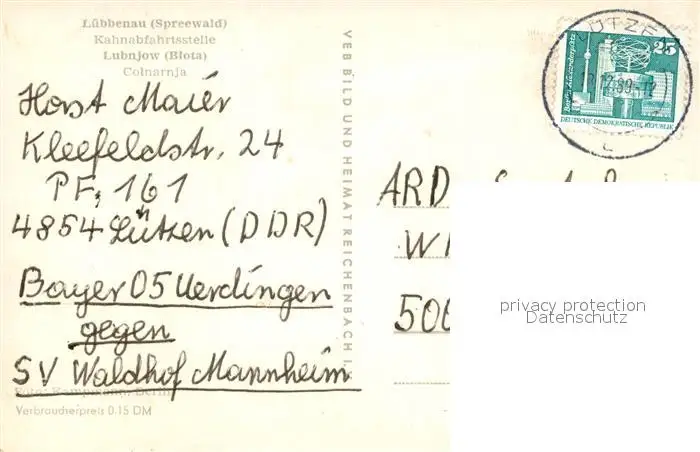 Lübbenau (Spreewald)
Kahnabfahrtsstelle
Lubnjow (Błota)
Colnarnja
Horst Maier
Kleefeldstr. 24
PF, 161
4854 Lützen (DDR)
Bayer 05 Uerdingen
gegen
SV Waldhof Mannheim
Foto: Kampmann, Berlin
Verbraucherpreis 0.15 DM
VEB BILD UND HEIMAT REICHENBACH I.
LÜTZEN
12.89-12
Berlin, Alexanderplatz
25
DEUTSCHE DEMOKRATISCHE REPUBLIK
ARD
privacy protection
Datenschutz